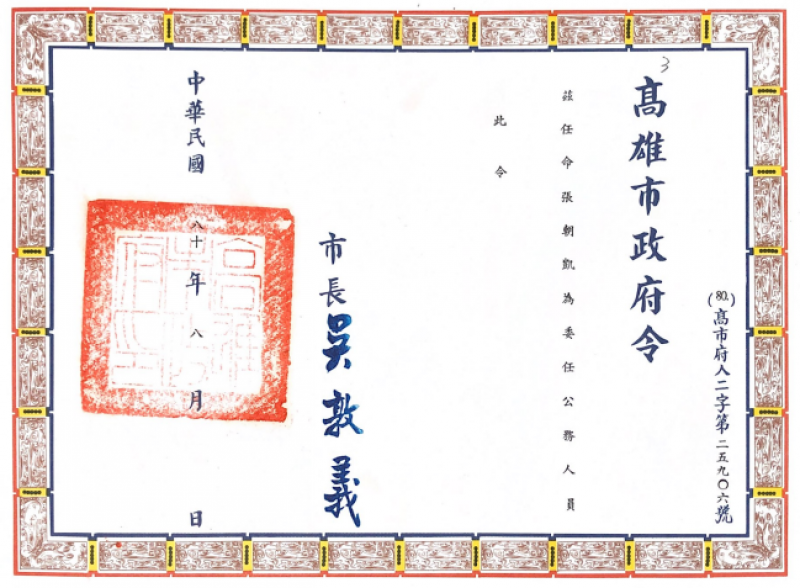 (80.)高市府人二字第二五九〇六號
3
高雄市政府令
茲任命張朝凱為委任公務人員
此令
市長吳敦義
中華民國八十年八月日